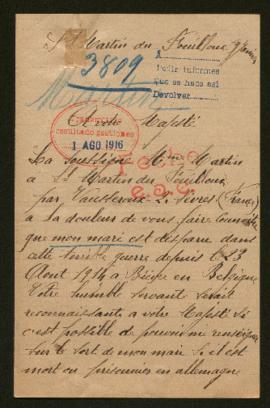 St Martin du Fouilloux
3809
A
Pedir informes
que se haga así
Devolver
Martin
A votre Majesté
resultado gestiones
1 AGO 1916
La soussignée Mme Martin
à St Martin du Fouilloux
par Vausseroux 2. Sèvres (France)
a la douleur de vous faire connaître
que mon mari est disparu dans
cette terrible guerre depuis le 23
Aout 1914 à Bièvre en Belgique
Votre humble servante serait
reconnaissante a votre Majesté si
c'est possible de pouvoir me renseigner
sur le sort de mon mari si il est
mort ou prisonnier en allemagne